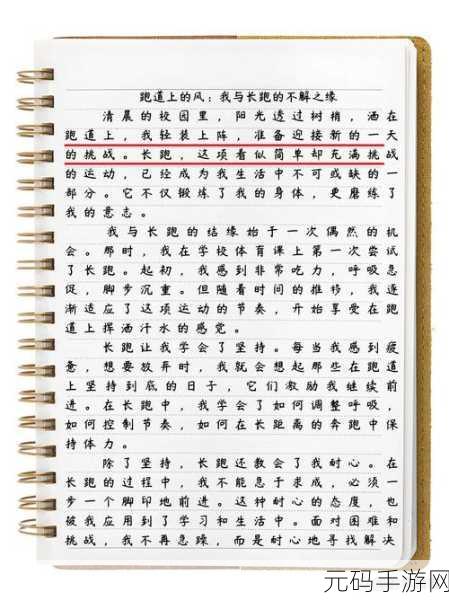 跑道上的风：我与长跑的不解之缘
清晨的校园里，阳光透过树梢，洒在
跑道上，我轻装上阵，准备迎接新的一天
的挑战。长跑，这项看似简单却充满挑战
的运动，已经成为我生活中不可或缺的一
部分。它不仅锻炼了我的身体，更磨练了
我的意志。
我与长跑的结缘始于一次偶然的机
会。那时，我在学校体育课上第一次尝试
了长跑。起初，我感到非常吃力，呼吸急
促，脚步沉重。但随着时间的推移，我逐
渐适应了这项运动的节奏，开始享受在跑
道上挥洒汗水的感觉。
长跑让我学会了坚持。每当我感到疲
惫，想要放弃时，我就会想起那些在跑道
上坚持到底的日子，它们激励我继续前
进。在长跑中，我学会了如何调整呼吸，
如何控制节奏，如何在长距离的奔跑中保
持体力。
除了坚持，长跑还教会了我耐心。在
长跑的过程中，我不能急于求成，必须一
步一个脚印地前进。这种耐心的态度，也
被我应用到了学习和生活中。面对困难和
挑战，我不再急躁，而是耐心地寻找解决
元码手游网